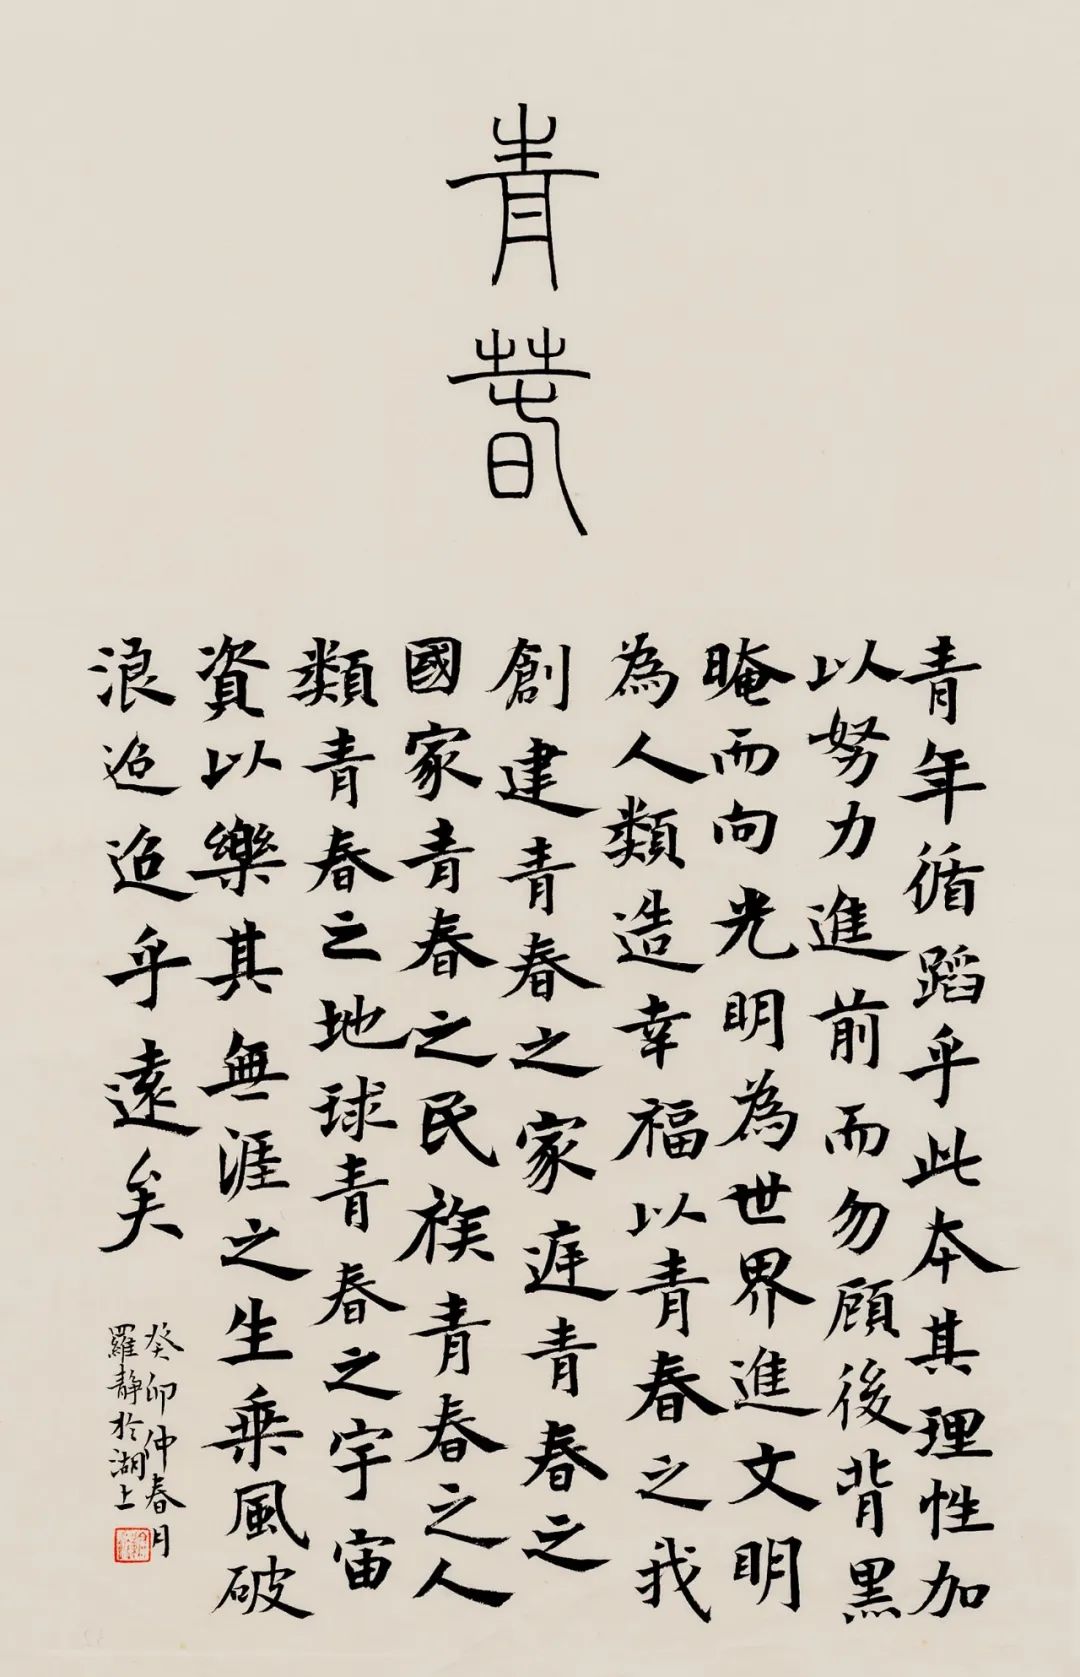 青春
青年循蹈乎此本其理性加
以努力進前而勿顧後背黑
晻而向光明為世界進文明
為人類造幸福以青春之我
創建青春之家庭青春之
國家青春之民族青春之人
類青春之地球青春之宇宙
資以樂其無涯之生乘風破
浪迢迢乎遠矣
癸卯仲春月
羅静於湖上